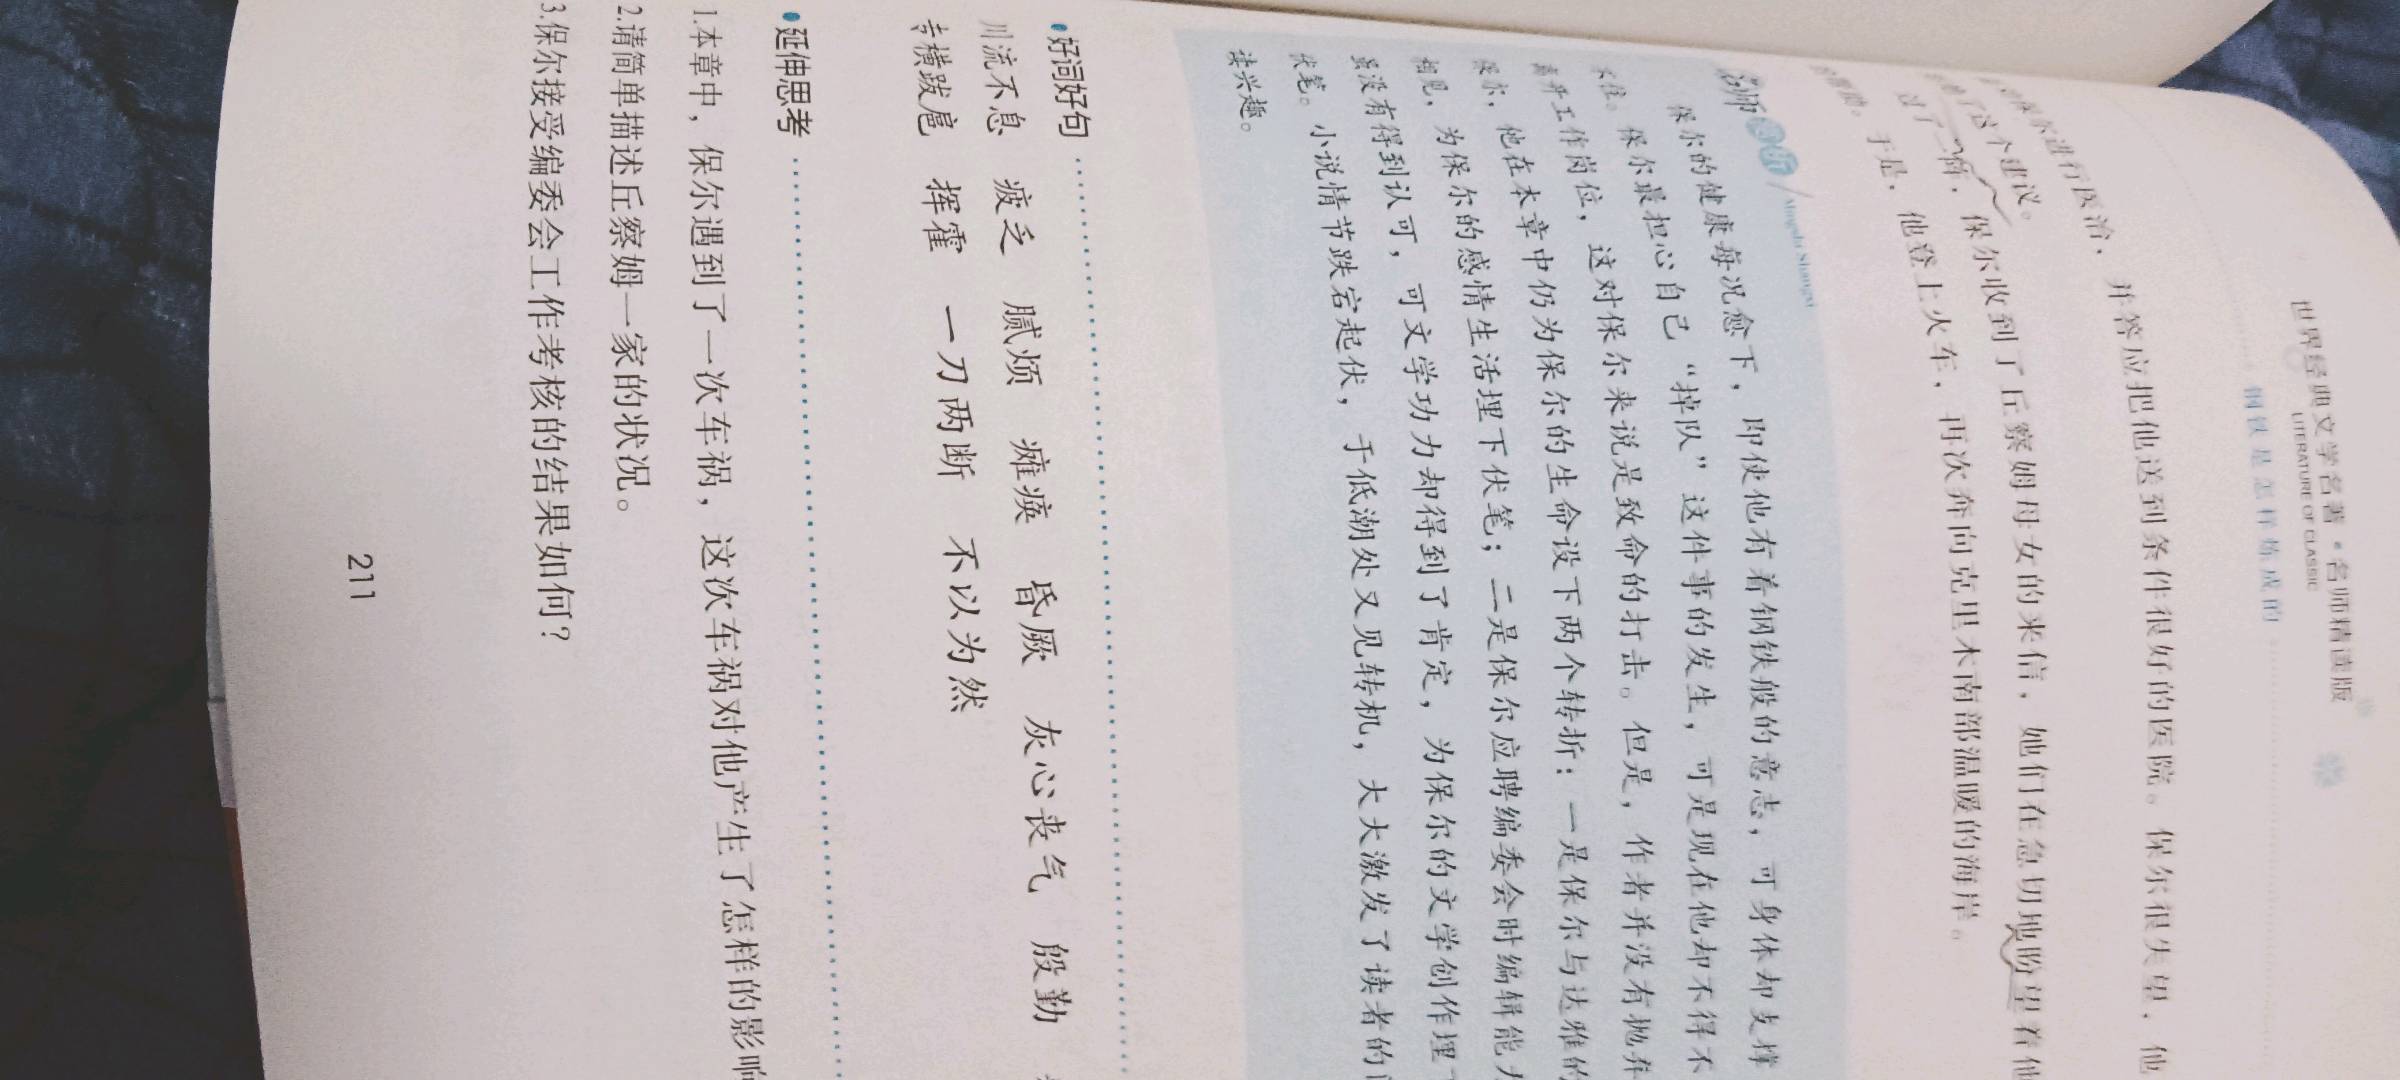 世界经典文学名著·名师精读版
LITERATURE OF CLASSIC
钢铁是怎样炼成的
保尔进行医治，并答应把他送到条件很好的医院。保尔很失望，他
了这个建议。
过了一 ，保尔收到了丘察姆母女的来信，她们在急切地盼望着他
于是，他登上火车，再次奔向克里木南部温暖的海岸。
名师赏析 Mingshi Shangxi
保尔的健康每况愈下，即使他有着钢铁般的意志，可身体却支撑
不住。保尔最担心自己“掉队”这件事的发生，可是现在他却不得不
离开工作岗位，这对保尔来说是致命的打击。但是，作者并没有抛弃
保尔，他在本章中仍为保尔的生命设下两个转折：一是保尔与达雅的
相见，为保尔的感情生活埋下伏笔；二是保尔应聘编委会时编辑能力
虽没有得到认可，可文学功力却得到了肯定，为保尔的文学创作埋下
伏笔。小说情节跌宕起伏，于低潮处又见转机，大大激发了读者的
读兴趣。
好词好句
川流不息 疲乏 腻烦 瘫痪 昏厥 灰心丧气 殷勤
专横跋扈 挥霍 一刀两断 不以为然
延伸思考
1.本章中，保尔遇到了一次车祸，这次车祸对他产生了怎样的影响
2.请简单描述丘察姆一家的状况。
3.保尔接受编委会工作考核的结果如何？
211